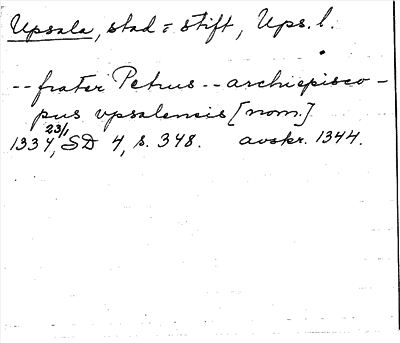 Upsala, stad = stift, Ups. l.
-- frater Petrus -- archiepisco-
pus vpsalensis [nom.]
1334 23/1, SD 4, s. 348. avskr. 1344.